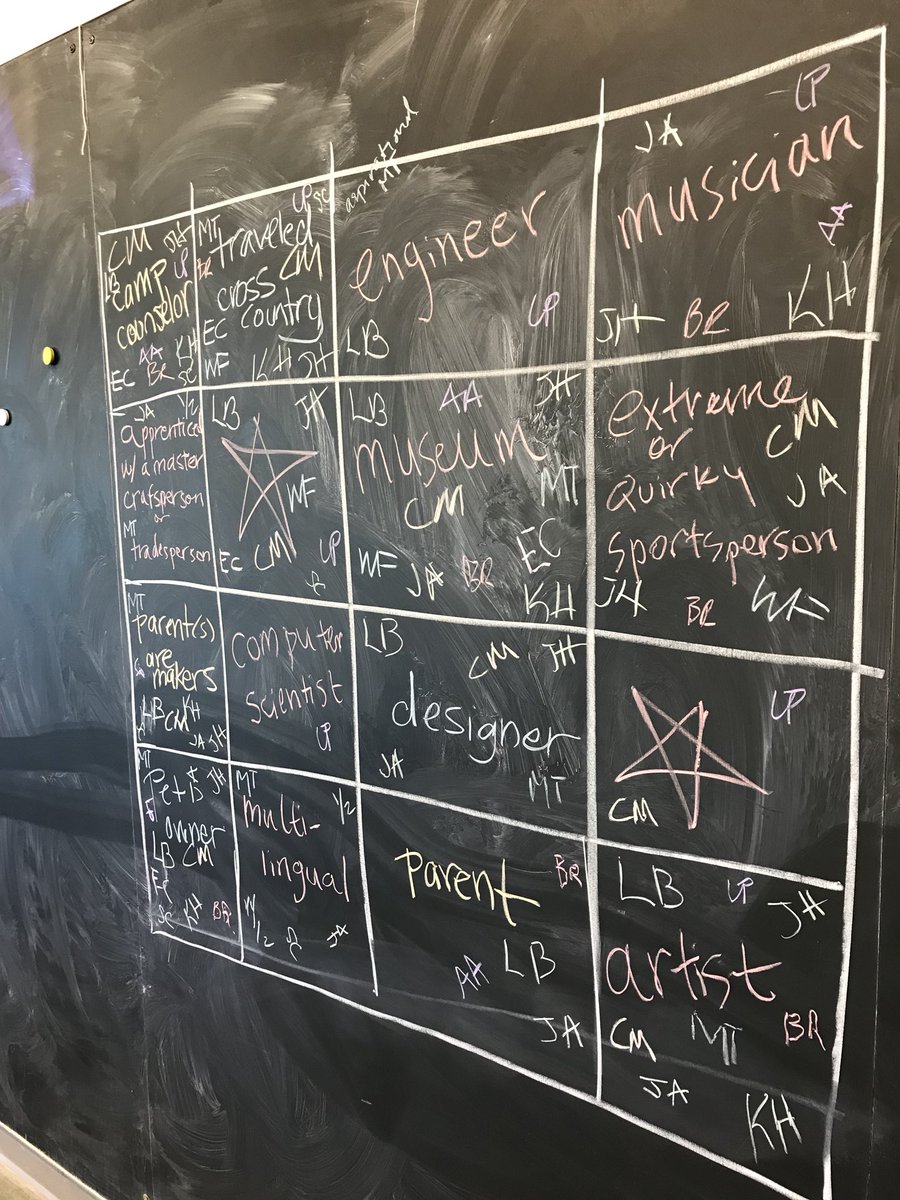 aspirational
MT
CM JH
LB UP
camp
counselor
AA KH
EC BR SC
MT UP SC
traveled
BR CM
cross
country
EC
WF KH JH
engineer
UP
LB
JA UP
musician
JH BR KH
JA 1/2
apprentice
w/ a master
crafsperson
or
MT
tradesperson
LB JH
WF
EC CM UP
LB AA JH
museum
CM MT
EC
WF JA BR
KH
extreme
or CM
quirky JA
sportsperson
JH BR WF
MT
parent(s)
are
makers
LB CM KH
JA JH
computer
scientist
UP
LB CM JH
designer
JA MT
UP
CM
MT
Pet JH
owner
LB CM
EC
KH BR
MT 1/2
multi-
lingual
1/2 JA
parent BR
AA LB
JA
LB UP JH
artist
CM MT BR
JA KH